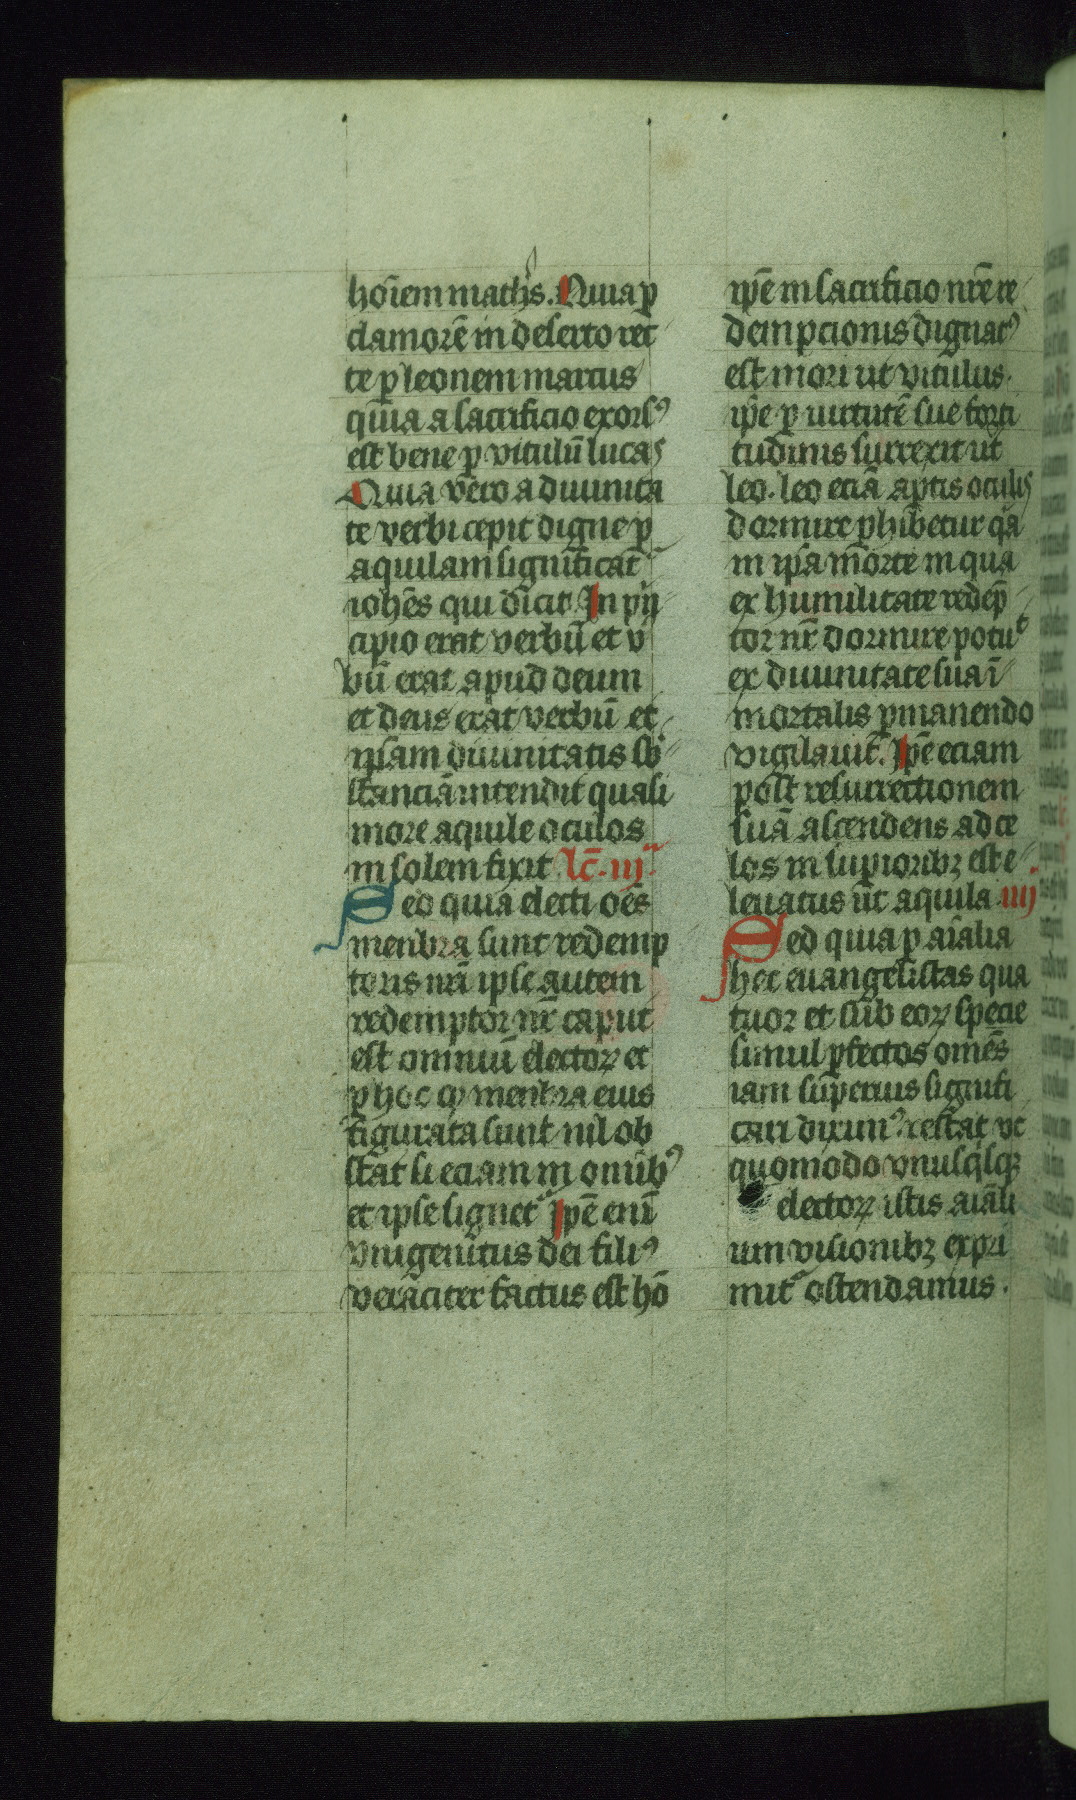 hoīem matħs. Quia ꝑ
clamorē in deserto rec
te ꝑ leonem marcus
quia a sacrificio exorsꝰ
est bene ꝑ vitulū lucas
Quia vero a diuinita
te verbi cepit digne ꝑ
aquilam significat̄
ioħēs qui dicit In pͥn
cipio erat verbū et v̄
bū erat apud deum
et deus erat verbū et
ipsam diuinitatis sb̄
stanciā intendit quasi
more aquile oculos
in solem fixit Lc̄. iij
Sed quia electi oēs
menbra sunt redemp
toris nr̄i ipse autem
redemptor nr̄ caput
est omniū electoꝝ et
ꝑ hoc ꝙ menbra eius
figurata sunt nil ob
stat si eciam in oniıbꝰ
et ipse signet᷑ Ip̄e enī
vnigenitus dei filiꝰ
veraciter factus est hō
ip̄e in sacrificio nr̄e re
dempcionis dignatꝰ
est mori ut vitulus.
ip̄e ꝑ uirtutē sue forti
tudinis surrexit ut
leo. leo eciā aꝑtis oculis
dormire ꝓhibetur qͣa
in ipsa morte in qua
ex humilitate redēp
tor nr̄ dormire potuͭ
ex diuinitate sua ī
mortalis ꝑmanendo
vigilauit. Ip̄e eciam
post resurrectionem
suā ascendens ad ce
los in suꝑioribꝫ est e
leuatus ut aquila iiij
Sed quia ꝑ aīalia
hec euangelistas qua
tuor et sub eoꝝ specie
simul ꝑfectos omēs
iam superius signifi
cari diximꝰ restat ut
quomodo vnusqͥsqꝫ
electoꝝ istis aīali
um visionibꝫ expri
mit᷑ ostendamus.